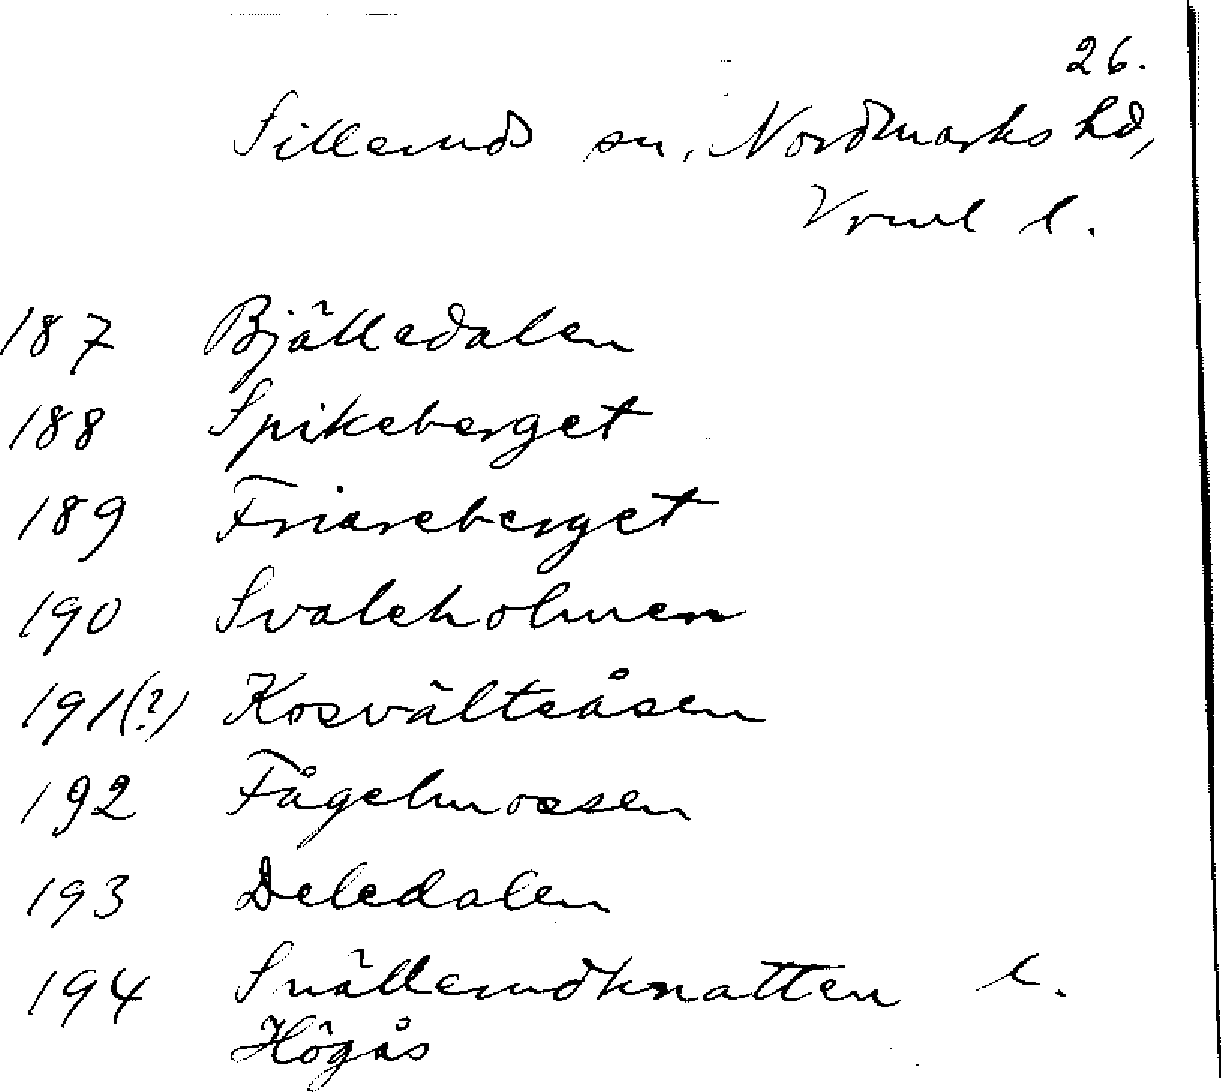 26.
Sillerud sn, Nordmarks hd,
Vrml l.
187 Bjälledalen
188 Spikeberget
189 Friareberget
190 Svaleholmen
191(?) Kosvältsåsen
192 Fågelmossen
193 Deledalen
194 Snällerudknatten l.
Högås